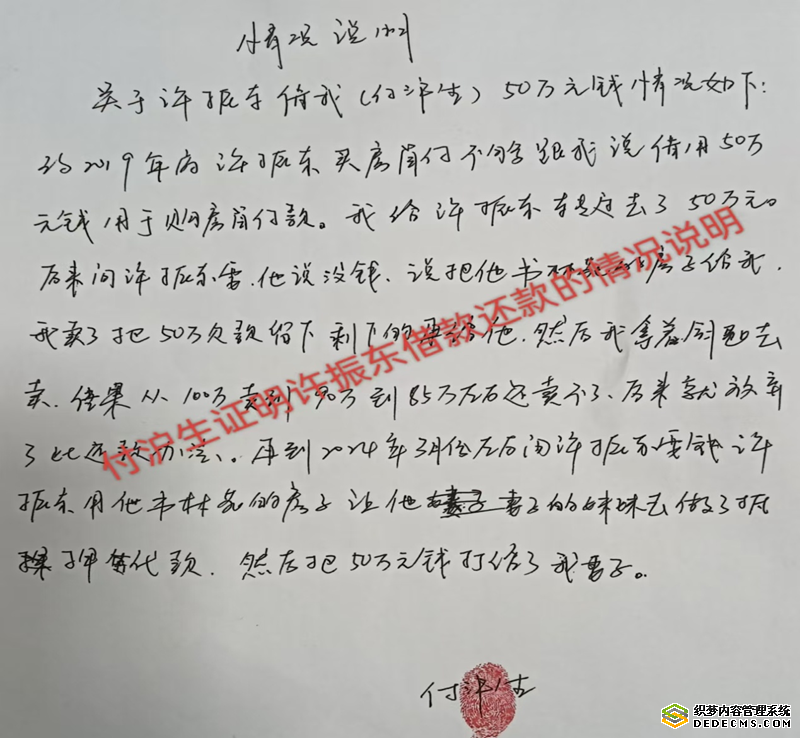 情况说明
关于许振东借我(付沪生)50万元钱情况如下:
约2019年底许振东买房首付不够跟我说借用50万
元钱用于购房首付款。我给许振东转过去了50万元。
后来问许振东要,他说没钱、说把他书林苑的房子给我,
我卖了把50万欠款留下剩下的再给他,然后我拿着到处去
卖、结果从100万卖到90万到85万左右还卖不了、后来就放弃
了此还款办法、。再到2024年3月份左右问许振东要钱许
振东用他书林苑的房子让他妻子的妹妹去做了抵
押贷款,然后把50万元钱打给了我妻子。
付沪生
付沪生证明许振东借款还款的情况说明
织梦内容管理系统
DEDECMS.COM